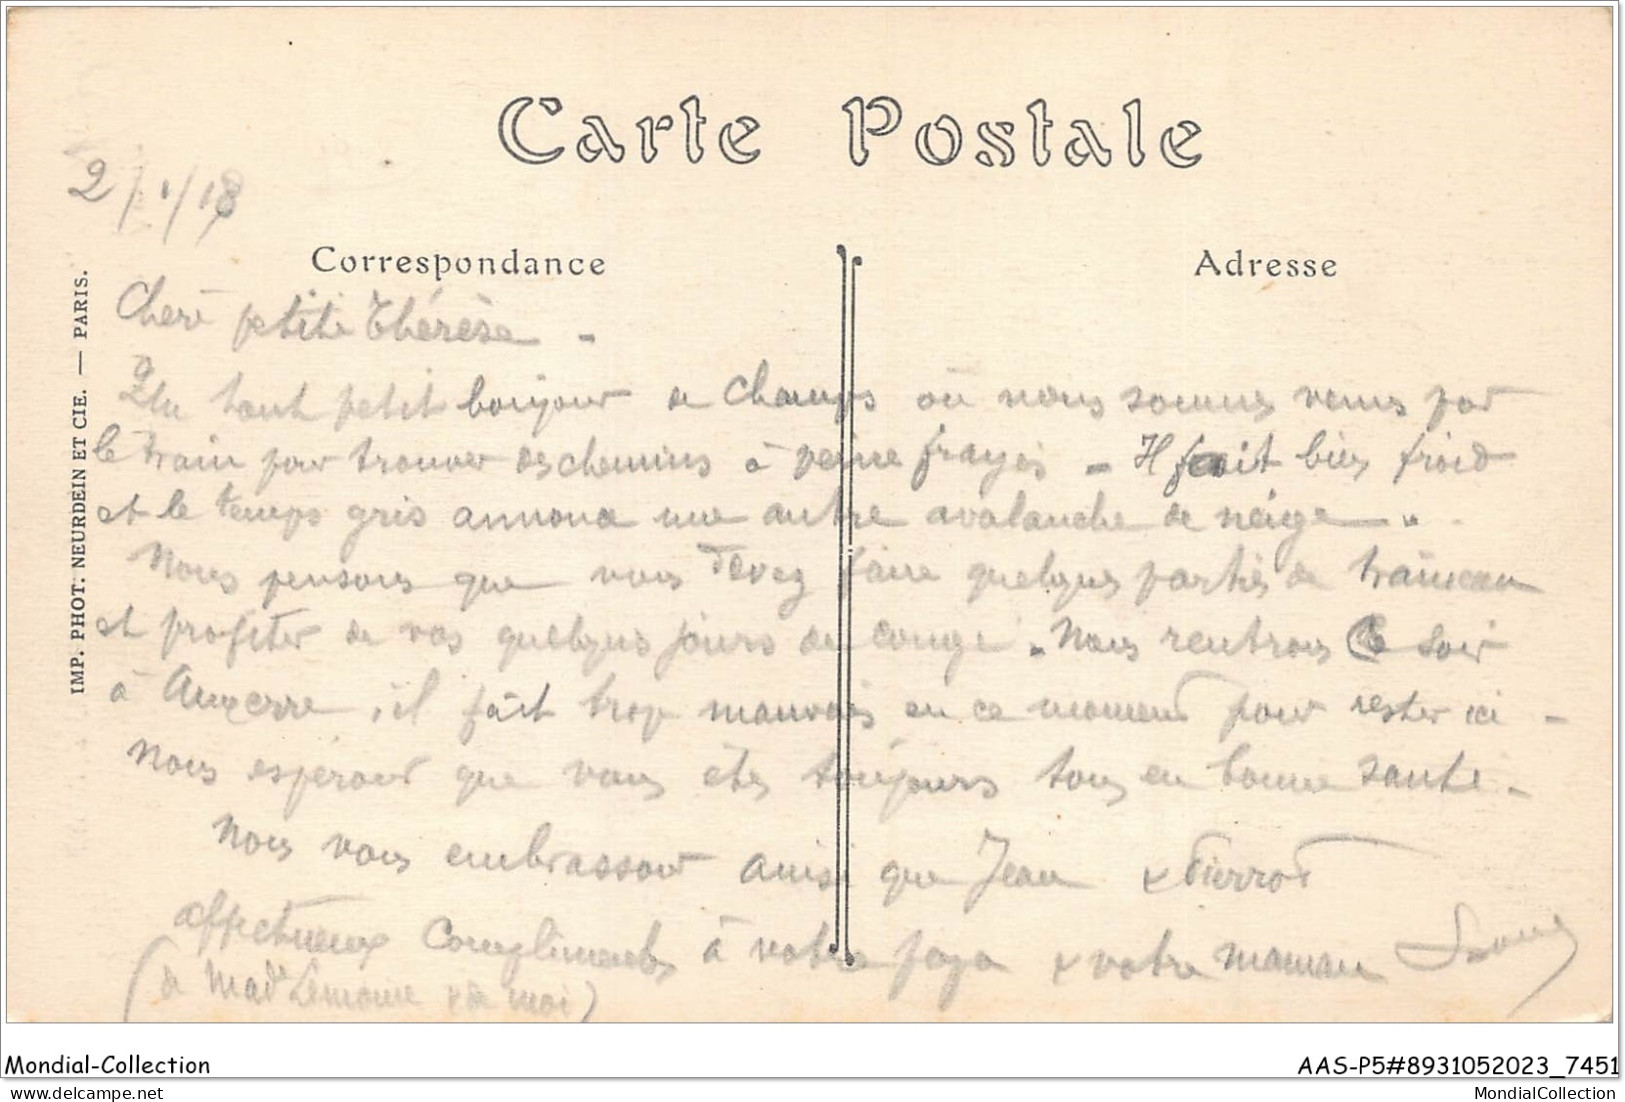 Carte Postale
2/1/18
Correspondance
Adresse
IMP. PHOT. NEURDEIN ET CIE. — PARIS.
Chère petite Thérèse -
Un tout petit bonjour de Champs où nous sommes venus par
le train pour trouver des chemins à peine frayés - Il fait bien froid
et le temps gris annonce une autre avalanche de neige - .
Nous pensons que vous devez faire quelques parties de traîneau
et profiter de vos quelques jours de congé. Nous rentrons ce soir
à Auxerre, il fait trop mauvais en ce moment pour rester ici -
Nous espérons que vous êtes toujours tous en bonne santé -
Nous vous embrassons ainsi que Jean & Pierrot
affectueux compliments à votre papa & votre maman
(de Made Lemoine & de moi)
Mondial-Collection
AAS-P5#8931052023_7451
MondialCollection